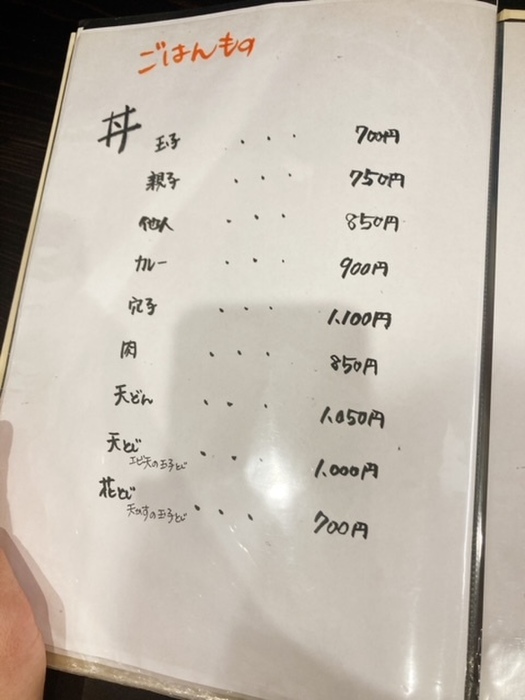 ごはんもの
丼 玉子 ・・・ 700円
親子 ・・・ 750円
他人 ・・・ 850円
カレー ・・・ 900円
穴子 ・・・ 1,100円
肉 ・・・ 850円
天どん ・・・ 1,050円
天とじ ・・・ 1,000円
エビ天の玉子とじ
花とじ ・・・ 700円
天かすの玉子とじ